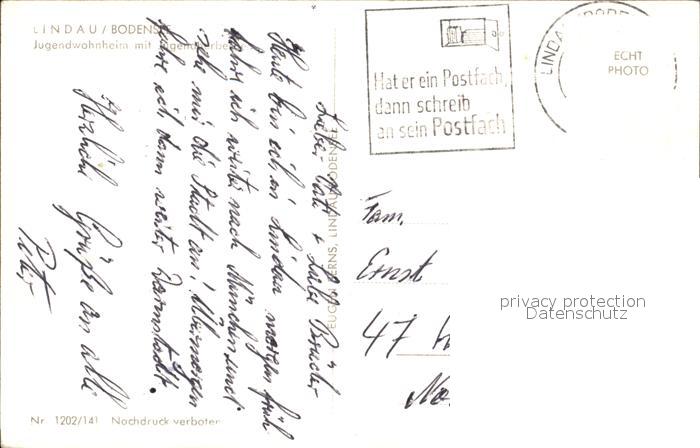 LINDAU / BODENSEE
Jugendwohnheim mit Jugendherberge
Lieber Vati + liebe Brüder
Heute bin ich in Lindau morgen früh
fahre ich weiter nach München und
sehe mir die Stadt an. Übermorgen
fahre ich dann weiter Darmstadt.
Herzliche Grüße an alle
Peter
Nr. 1202/141 Nachdruck verboten
LINDAU/BODENSEE
Hat er ein Postfach,
dann schreib
an sein Postfach
LINDA
ECHT
PHOTO
Fam.
Ernst
47
privacy protection
Datenschutz